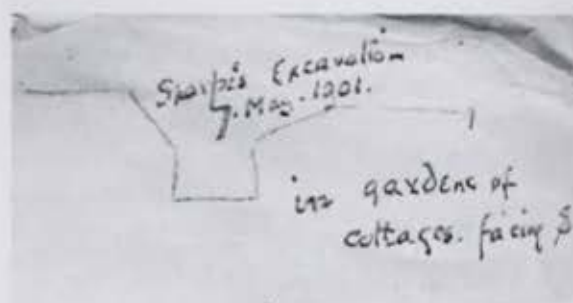 Sharpe's Excavation
7. May. 1901.
in gardens of
cottages. facing S